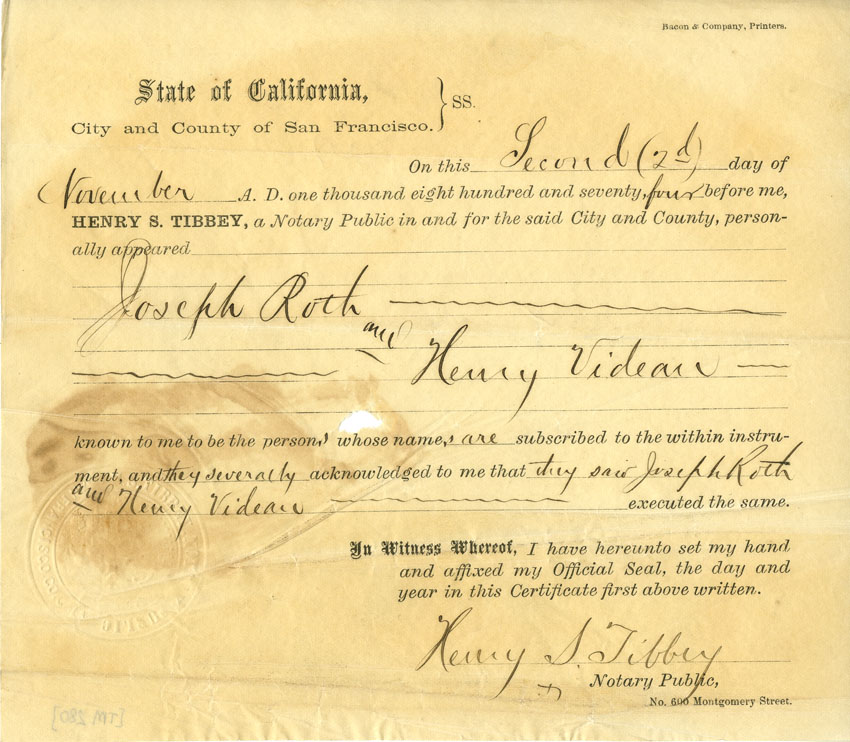 Bacon & Company, Printers.
State of California,
City and County of San Francisco. } SS.
On this Second (2d) day of
November A. D. one thousand eight hundred and seventy, four before me,
HENRY S. TIBBEY, a Notary Public in and for the said City and County, person-
ally appeared
Joseph Roth
and
Henry Videau
known to me to be the persons whose names are subscribed to the within instru-
ment, and they severally acknowledged to me that they said Joseph Roth
and Henry Videau executed the same.
In Witness Whereof, I have hereunto set my hand
and affixed my Official Seal, the day and
year in this Certificate first above written.
Henry S. Tibbey
Notary Public,
No. 600 Montgomery Street.
[TM 280]